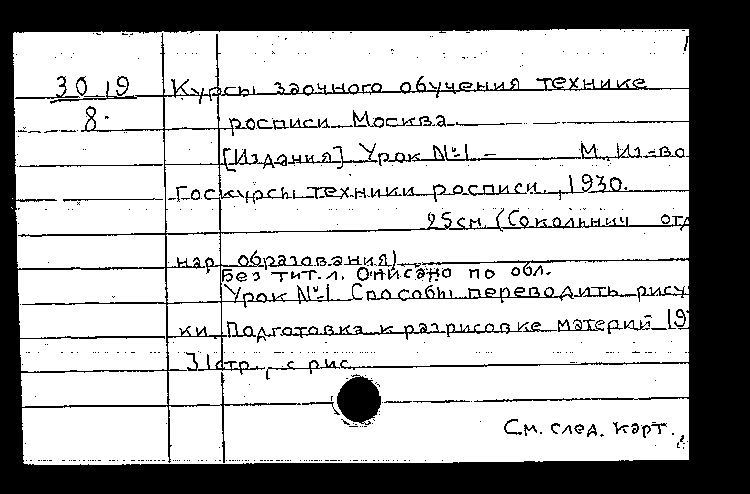 30 19
8.
Курсы заочного обучения технике
росписи. Москва.
[Издания] Урок №1 - М., Из-во
Госкурсы техники росписи, 1930.
25см. (Сокольнич отд
нар образования)
Без тит.л. Описано по обл.
Урок №1 Способы переводить рису
ки. Подготовка к разрисовке материй 19
31стр., с рис.
См. след. карт.